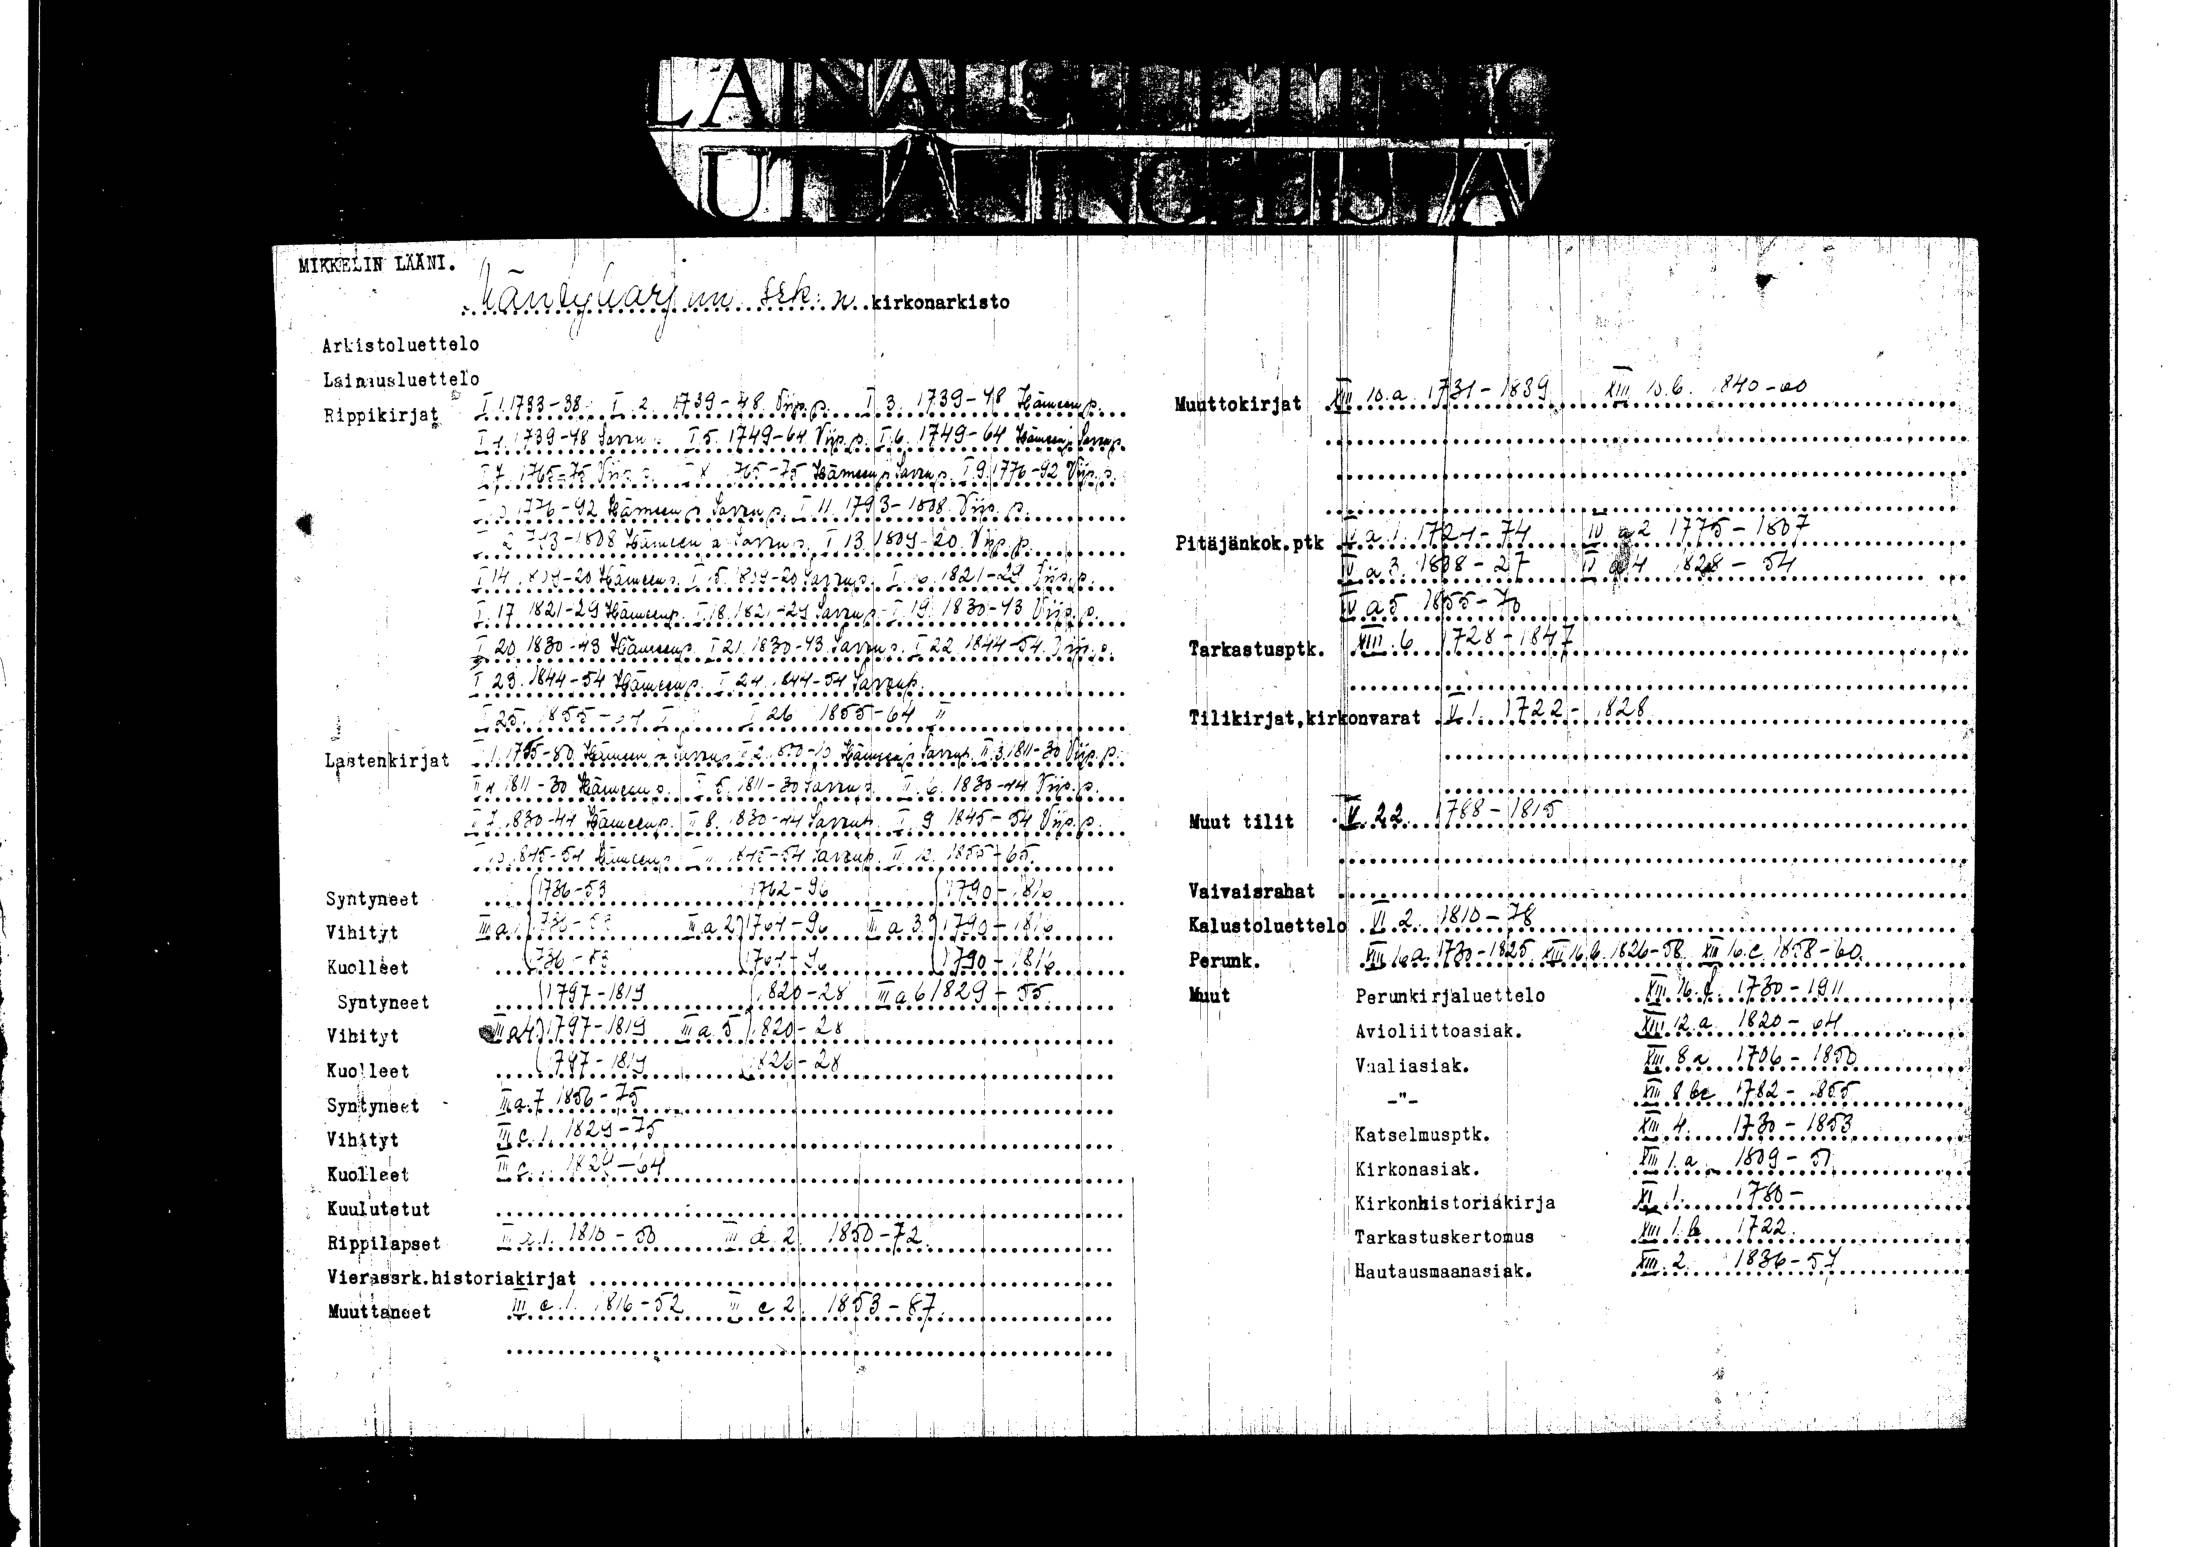 LAINAUSLUETTELO
UTLÅNINGSLISTA
MIKKELIN LÄÄNI.
Mäntyharjun srk:n kirkonarkisto
Arkistoluettelo
Lainausluettelo
Rippikirjat I 1. 1733-38. I 2. 1739-48 Viip.p. I 3. 1739-48 Hämeenp.
I 4. 1739-48 Savon I 5. 1749-64 Viip.p. I 6. 1749-64 Hämeen ja Savonp.
I 7. 1765-75 Viip.p. I 8. 1765-75 Hämeen ja Savonp. I 9. 1776-92 Viip.p.
I 10 1776-92 Hämeen ja Savonp. I 11. 1793-1808. Viip.p.
I 12 1793-1808 Hämeen ja Savonp. I 13. 1809-20. Viip.p.
I 14. 1809-20 Hämeenp. I 15. 1809-20 Savonp. I 16. 1821-29 Viip.p.
I 17 1821-29 Hämeenp. I 18. 1821-29 Savonp. I 19. 1830-43 Viip.p.
I 20 1830-43 Hämeenp. I 21. 1830-43. Savonp. I 22. 1844-54. Viip.p.
I 23. 1844-54 Hämeenp. I 24. 1844-54 Savonp.
I 25. 1855-64 I I 26 1855-64 II
Lastenkirjat II 1. 1795-80 Hämeen ja Savonp. II 2. 1800-10 Hämeen ja Savonp. II 3. 1811-30 Viip.p.
II 4 1811-30 Hämeenp. II 5. 1811-30 Savonp. II 6. 1830-44 Viip.p.
II 7. 1830-44 Hämeenp. II 8. 1830-44 Savonp. II 9 1845-54 Viip.p.
II 10. 1845-54 Hämeenp. II 11. 1845-54 Savonp. II 12. 1855-65.
Syntyneet 1736-53 1762-96 1790-1816
Vihityt III a 1 1736-53 III a 2 1764-96 III a 3 1790-1816
Kuolleet 1736-53 1764-96 1790-1816
Syntyneet 1797-1819 1820-28 III a 6 1829-55
Vihityt III a 4 1797-1819 III a 5 1820-28
Kuolleet 1797-1819 1826-28
Syntyneet III a 7 1856-75
Vihityt III c. 1. 1829-75
Kuolleet III 1829-64
Kuulutetut
Rippilapset 1. 1810-50 III d 2 1850-72.
Vierassrk.historiakirjat
Muuttaneet III e. 1. 1816-52 III e 2. 1853-87.
Muuttokirjat XIII 10.a. 1731-1839 XIII 10.b. 1840-60
Pitäjänkok.ptk IV a 1. 1724-74 IV a 2 1775-1807
IV a 3. 1808-27 IV a 4 1828-54
IV a 5 1855-70
Tarkastusptk. XIII. 6 1728-1847
Tilikirjat,kirkonvarat V. 1. 1722-1828
Muut tilit V. 22. 1788-1815
Vaivaisrahat
Kalustoluettelo VI 2. 1810-78
Perunk. XIII 16 a. 1730-1825. XIII 16.b. 1826-58. XIII 16.c. 1858-60.
Muut Perunkirjaluettelo XIII. 16. f. 1730-1911
Avioliittoasiak. XIII 12. a. 1820-64
Vaaliasiak. XIII 8 a 1706-1850
-"- XIII 8 bc 1782-1855
Katselmusptk. XIII 4. 1730-1853
Kirkonasiak. XIII 1. a 1809-51
Kirkonhistoriakirja XI. 1. 1780-
Tarkastuskertomus XIII 1. b 1722.
Hautausmaanasiak. XIII. 2. 1836-57